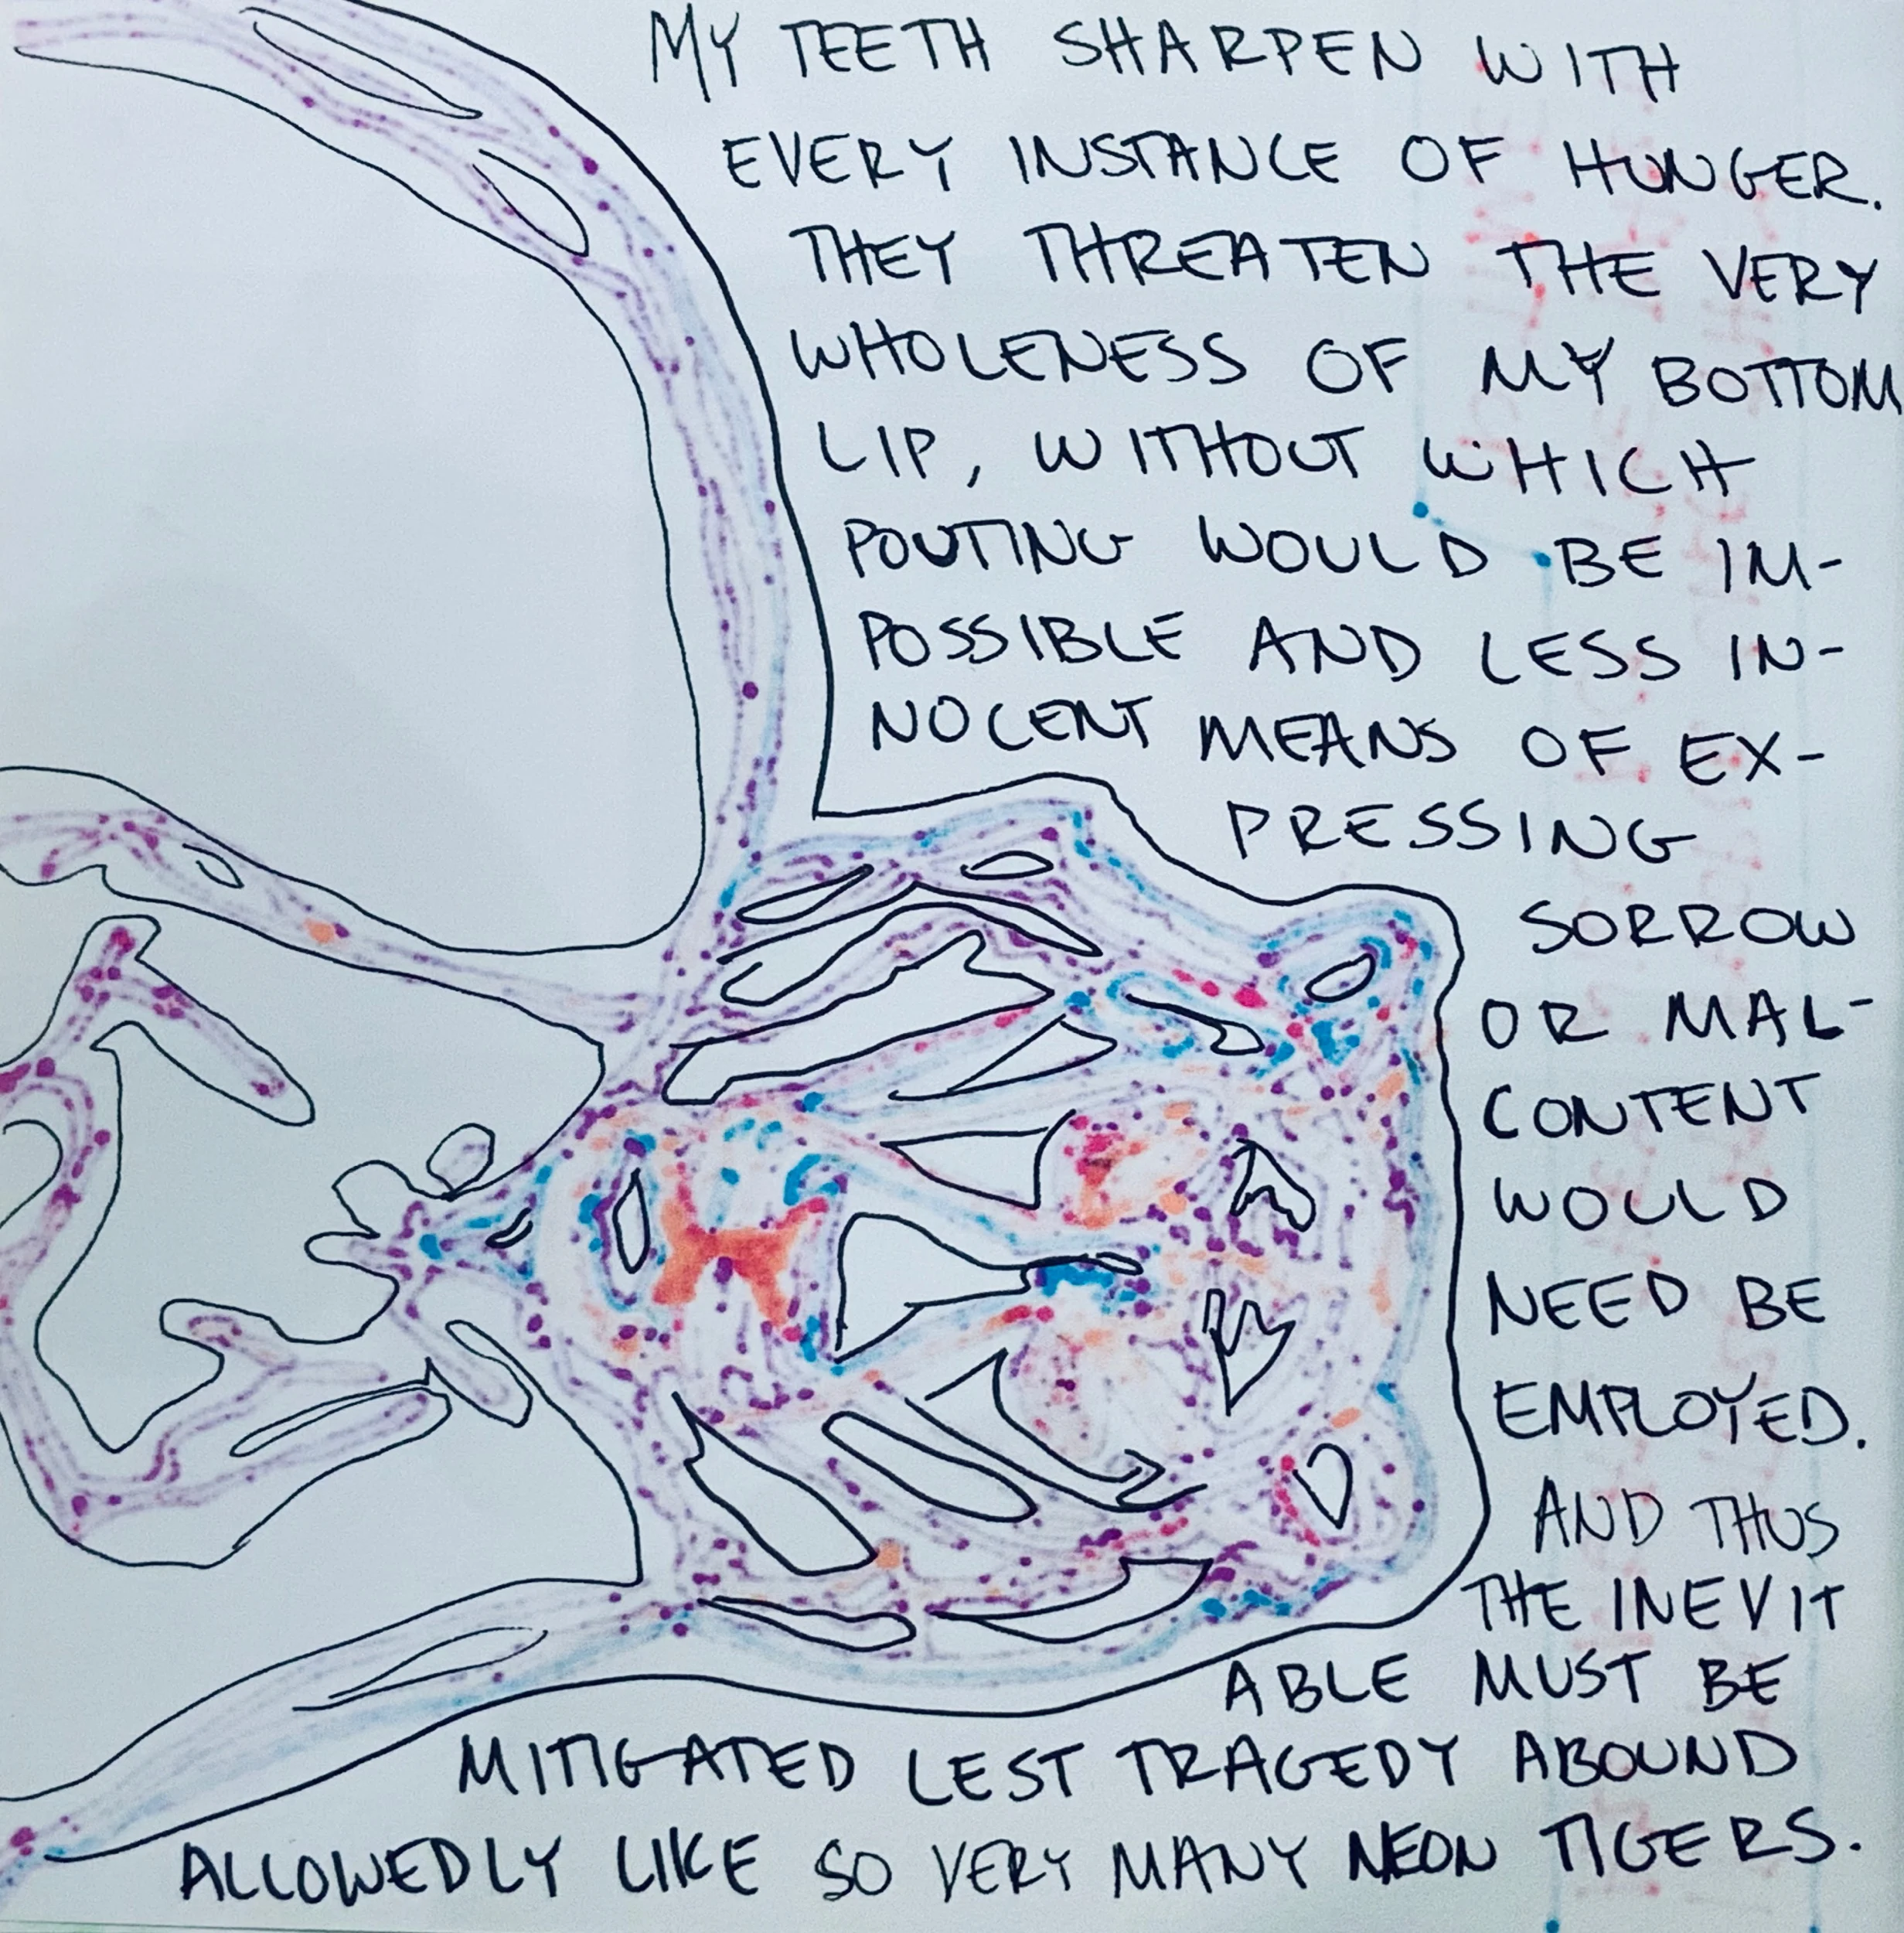 MY TEETH SHARPEN WITH
EVERY INSTANCE OF HUNGER.
THEY THREATEN THE VERY
WHOLENESS OF MY BOTTOM
LIP, WITHOUT WHICH
POUTING WOULD BE IM-
POSSIBLE AND LESS IN-
NOCENT MEANS OF EX-
PRESSING
SORROW
OR MAL-
CONTENT
WOULD
NEED BE
EMPLOYED.
AND THUS
THE INEVIT
ABLE MUST BE
MITIGATED LEST TRAGEDY ABOUND
ALLOWEDLY LIKE SO VERY MANY NEON TIGERS.